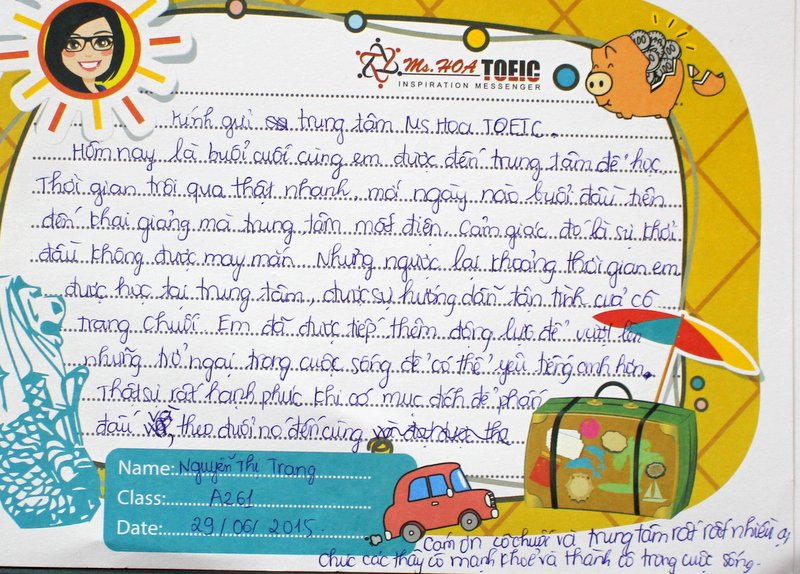 Ms. HOA TOEIC
INSPIRATION MESSENGER
Kính gửi trung tâm Ms Hoa TOEIC.
Hôm nay là buổi cuối cùng em được đến trung tâm để học.
Thời gian trôi qua thật nhanh, mới ngày nào buổi đầu tiên
đến khai giảng mà trung tâm mất điện. Cảm giác đó là sự khởi
đầu không được may mắn. Nhưng ngược lại khoảng thời gian em
được học tại trung tâm, được sự hướng dẫn tận tình của cô
trang chuối. Em đã được tiếp thêm động lực để vượt lên
những trở ngại trong cuộc sống để có thể yêu tiếng anh hơn.
Thật sự rất hạnh phúc khi có mục đích để phấn
đấu, theo đuổi nó đến cùng
Name: Nguyễn Thị Trang
Class: A261
Date: 29/06/2015
Cảm ơn cô chuối và trung tâm rất rất nhiều ạ
Chúc các thầy cô mạnh khoẻ và thành cô trong cuộc sống.